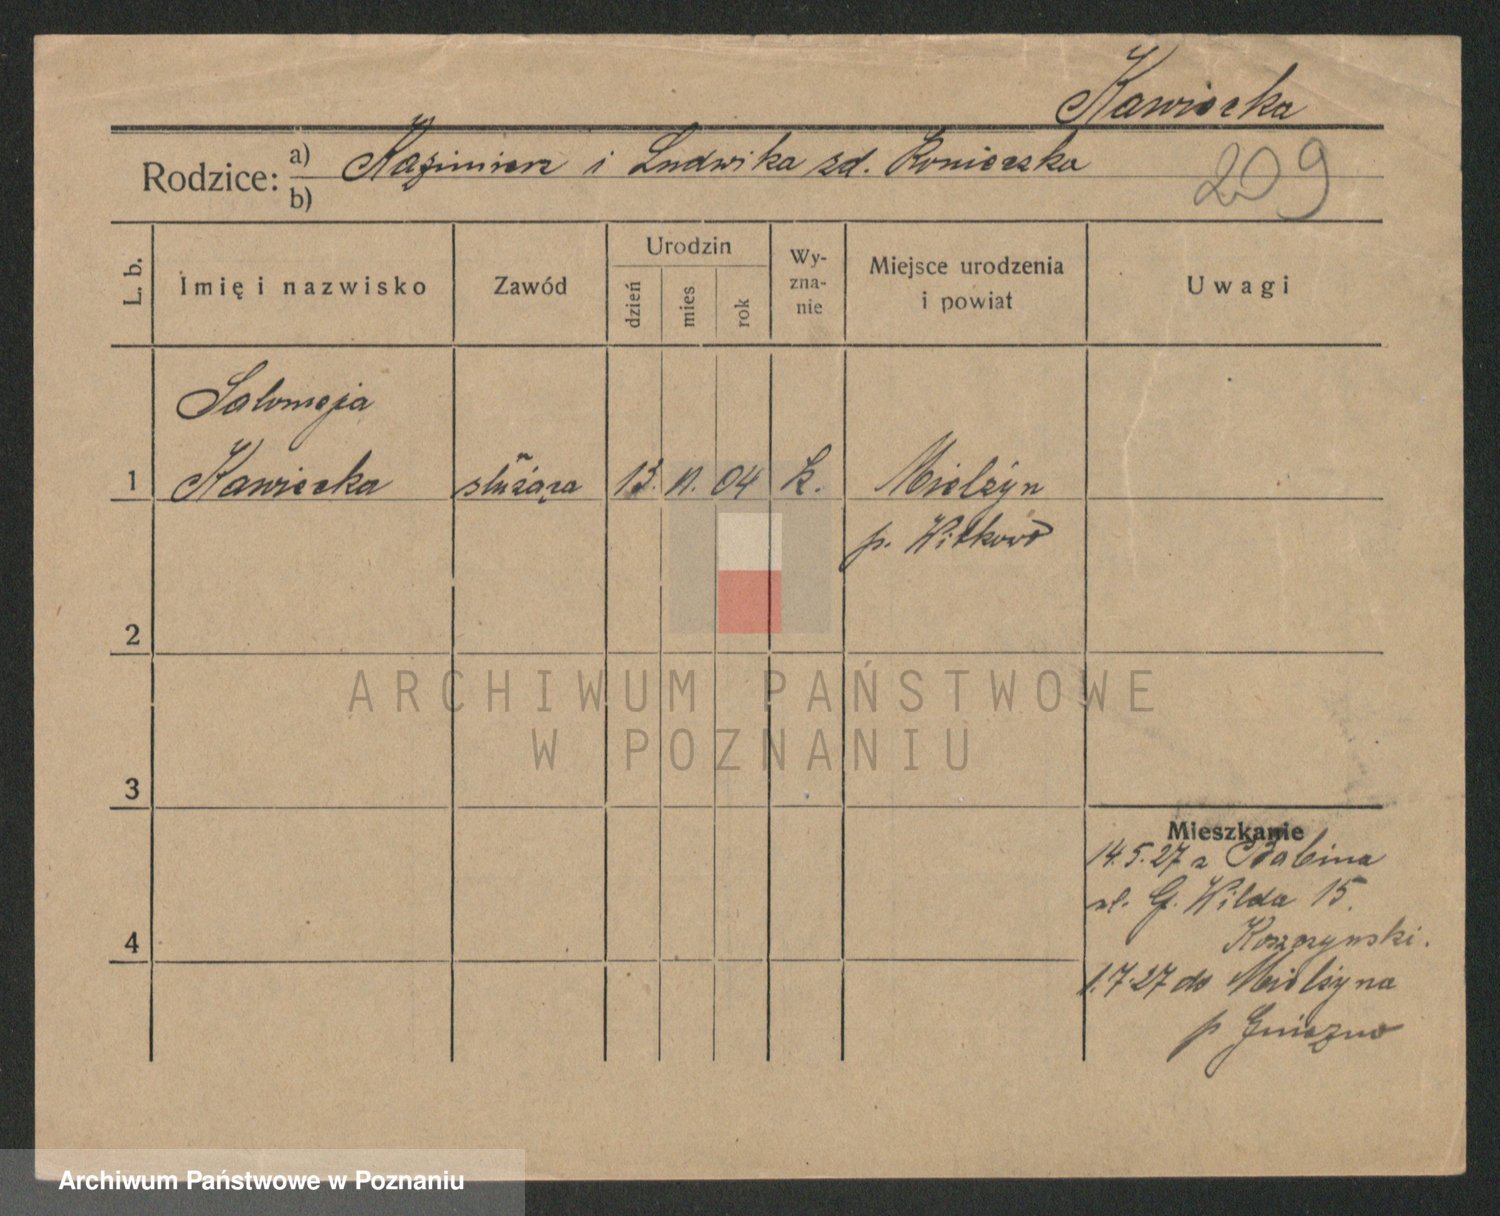 Kawiecka
Rodzice: a) Kazimierz i Ludwika zd. Konieczka
b)
209
L. b.
Imię i nazwisko
Zawód
Urodzin
dzień
mies
rok
Wy-
zna-
nie
Miejsce urodzenia
i powiat
Uwagi
Salomeja
1 Kawiecka służąca 13. 11. 04 k. Mielżyn
p. Witkowo
2
ARCHIWUM PAŃSTWOWE
W POZNANIU
3
Mieszkanie
14.5.27 z Babina
ul. G. Wilda 15.
4
1.7.27 do Mielżyna
p Gniezno
Archiwum Państwowe w Poznaniu